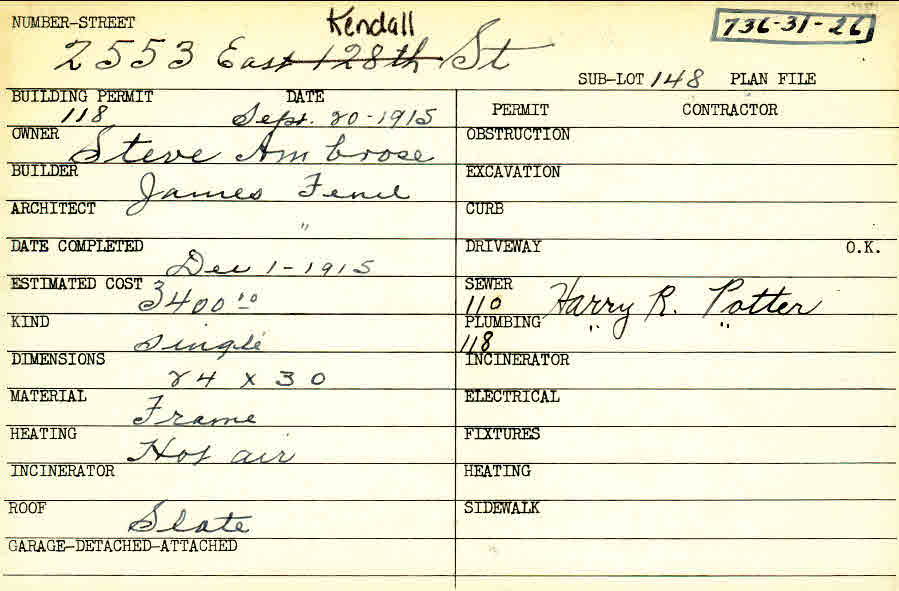 NUMBER-STREET Kendall 736-31-26
2553 East 128th St
SUB-LOT 148 PLAN FILE
BUILDING PERMIT DATE
118 Sept. 20-1915
PERMIT CONTRACTOR
OWNER Steve Ambrose
OBSTRUCTION
BUILDER James
EXCAVATION
ARCHITECT "
CURB
DATE COMPLETED Dec 1-1915
DRIVEWAY O.K.
ESTIMATED COST 3400
SEWER
110 Harry R. Potter
KIND Single
PLUMBING " "
118
DIMENSIONS 24 x 30
INCINERATOR
MATERIAL Frame
ELECTRICAL
HEATING Hot air
FIXTURES
INCINERATOR
HEATING
ROOF Slate
SIDEWALK
GARAGE-DETACHED-ATTACHED